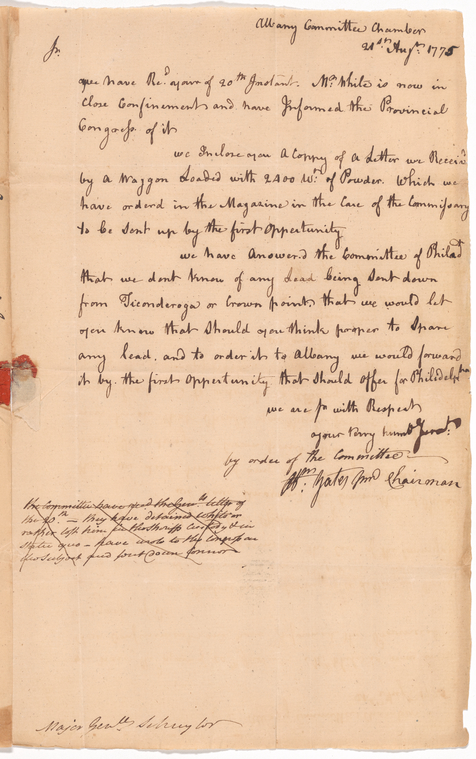 Albany Committee Chamber
21st Augt. 1775
Sr.
we have Recd. your of 20th Instant. Mr. White is now in
Close Confinement and have Informed the Provincial
Congress. of it
we Inclose you A Coppy of A Letter we Receivd.
by A Waggon Loaded with 2400 Wt. of Powder. Which we
have orderd in the Magazine in the Care of the Commissary
to be sent up by the first Opportunity
we have Answerd the Committee of Philadª
that we dont know of any Lead being sent down
from Ticonderoga or Crown point, that we would let
you know that should you think proper to Spare
any lead. and to order it to Albany we would forward
it by. the first Opportunity that should offer for Philedelphia
we are Sr with Respect
your very humbl Servt.
by order of the Committee
Yates Junr Chairman
the Committee have recd the Genls letter of
the 20th – they have detained White or
rather left him in the Sheriffs Custody & in
statu quo – have wrote to the Congress on
the Subject and sent down Connor
Major Genll Schuyler